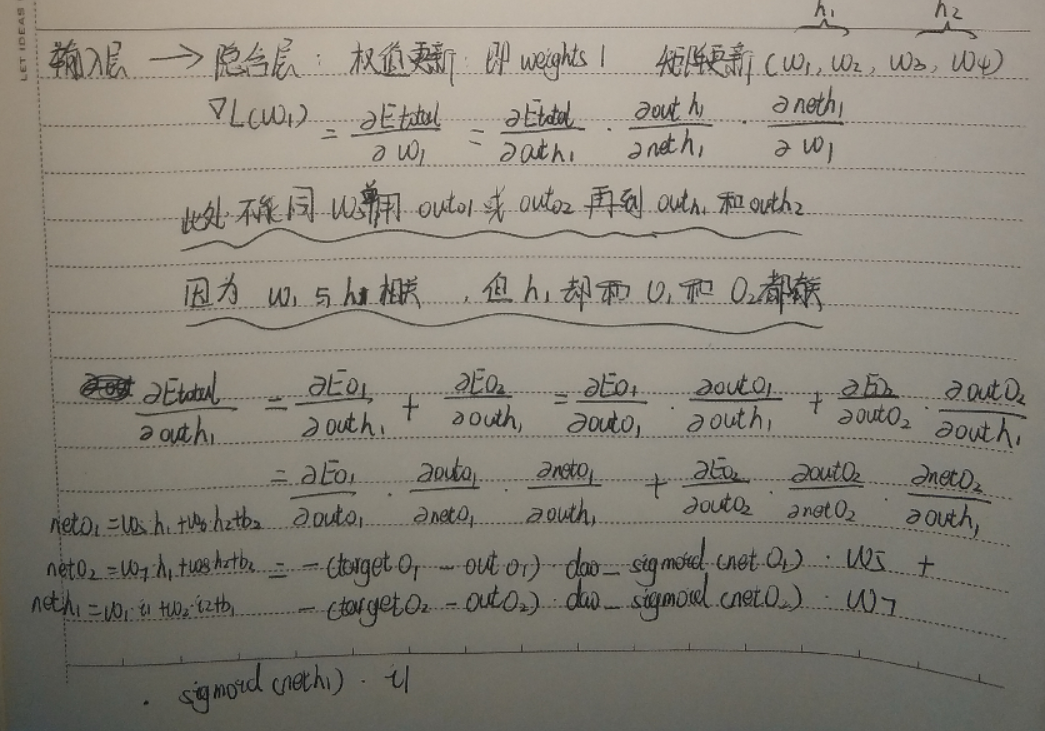 LET IDEAS
h₁ h₂
输入层 → 隐含层: 权值更新: 即 weights 1 矩阵更新 (w₁, w₂, w₃, w₄)
∇L(w₁) = ∂Etotal/∂w₁ = ∂Etotal/∂outh₁ · ∂outh₁/∂neth₁ · ∂neth₁/∂w₁
此处不能同 w₅单用 outo1 或 outo2 再到 outh₁ 和 outh₂
因为 w₁ 与 h₁ 相关, 但 h₁ 却和 O₁ 和 O₂都有关
∂Etotal/∂outh₁ = ∂EO₁/∂outh₁ + ∂EO₂/∂outh₁ = ∂EO₁/∂outO₁ · ∂outO₁/∂outh₁ + ∂EO₂/∂outO₂ · ∂outO₂/∂outh₁
= ∂EO₁/∂outO₁ · ∂outO₁/∂netO₁ · ∂netO₁/∂outh₁ + ∂EO₂/∂outO₂ · ∂outO₂/∂netO₂ · ∂netO₂/∂outh₁
netO₁ = w₅·h₁ + w₆·h₂ + b₂
netO₂ = w₇·h₁ + w₈·h₂ + b₂ = -(targetO₁ - outO₁) · dao_sigmoid(netO₁) · w5 +
neth₁ = w₁·i₁ + w₂·i₂ + b₁ -(targetO₂ - outO₂) · dao_sigmoid(netO₂) · w₇
· sigmoid(neth₁) · i1